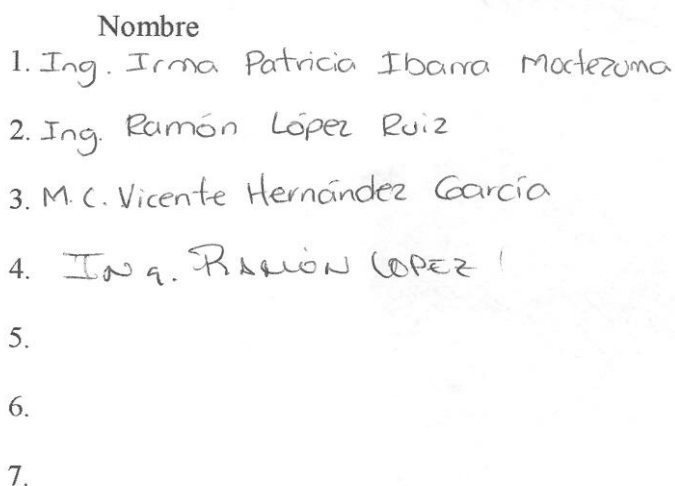 Nombre
1. Ing. Irma Patricia Ibarra Moctezuma
2. Ing. Ramón López Ruiz
3. M.C. Vicente Hernández García
4. ING. RAMÓN LOPEZ
5.
6.
7.